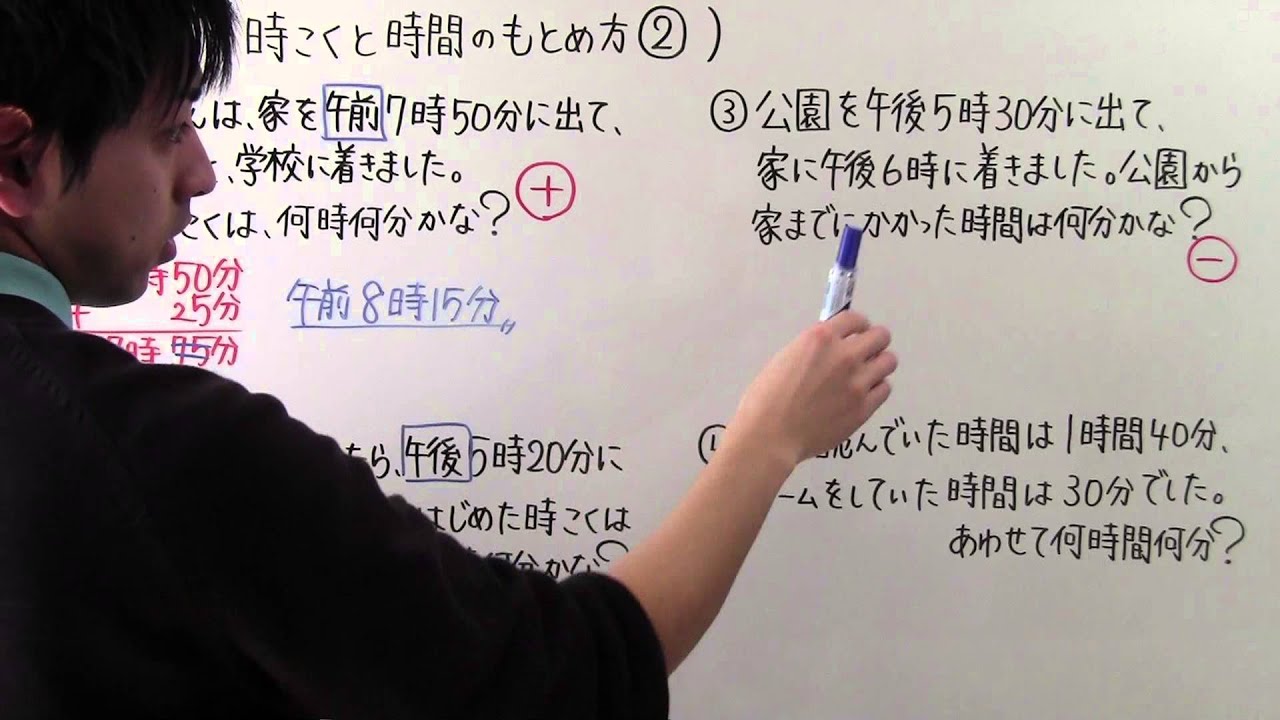 時こくと時間のもとめ方②）
んは、家を午前7時50分に出て、
、学校に着きました。
こくは、何時何分かな？ ＋
時50分
+ 25分
7時75分
午前8時15分
たら、午後5時20分に
はじめた時こくは
何分かな？
③公園を午後5時30分に出て、
家に午後6時に着きました。公園から
家までにかかった時間は何分かな？
－
んでいた時間は1時間40分、
ームをしていた時間は30分でした。
あわせて何時間何分？